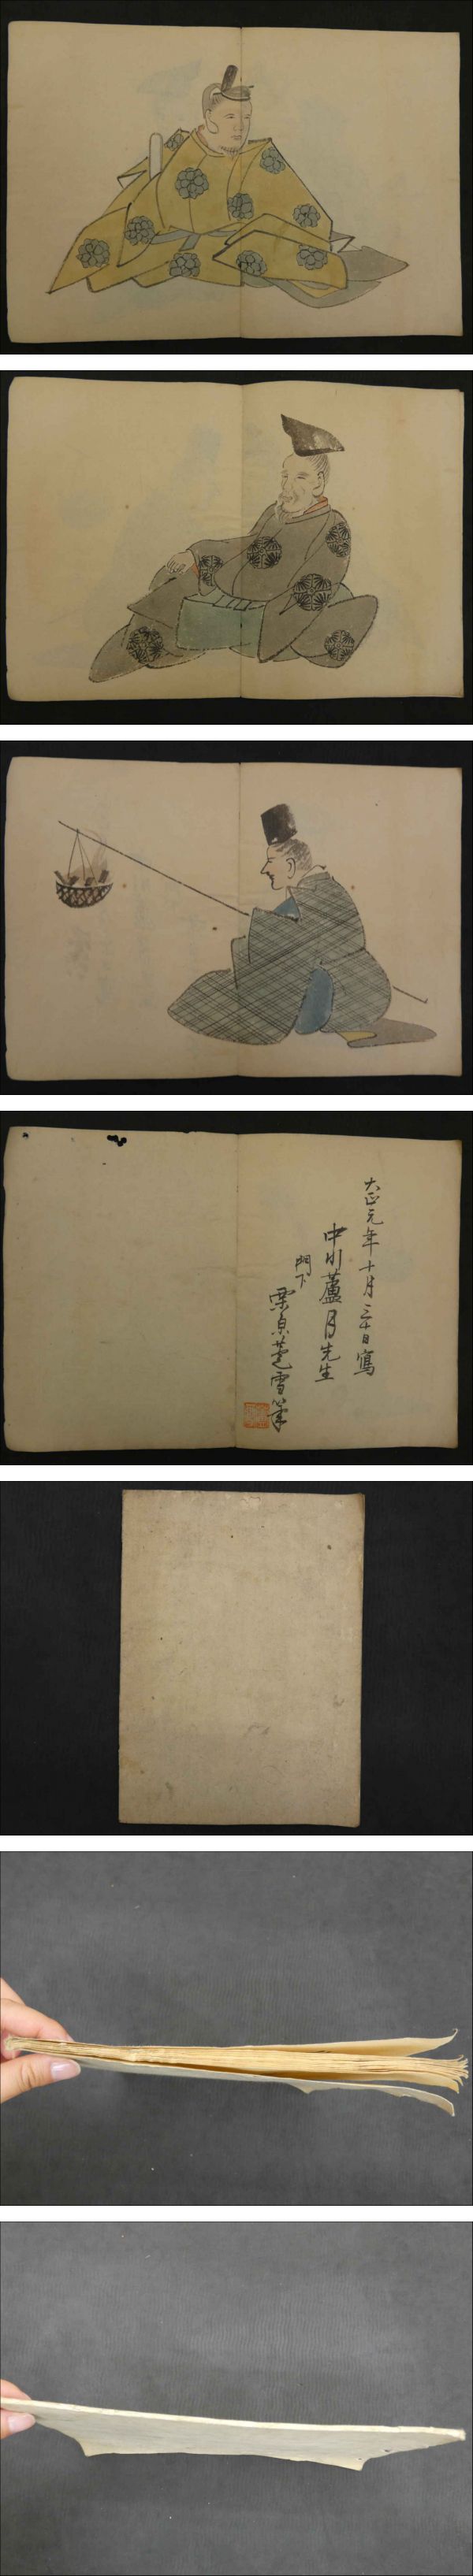 大正元年十月三十日寫
中川蘆月先生
門下
栗泉蘆雪筆